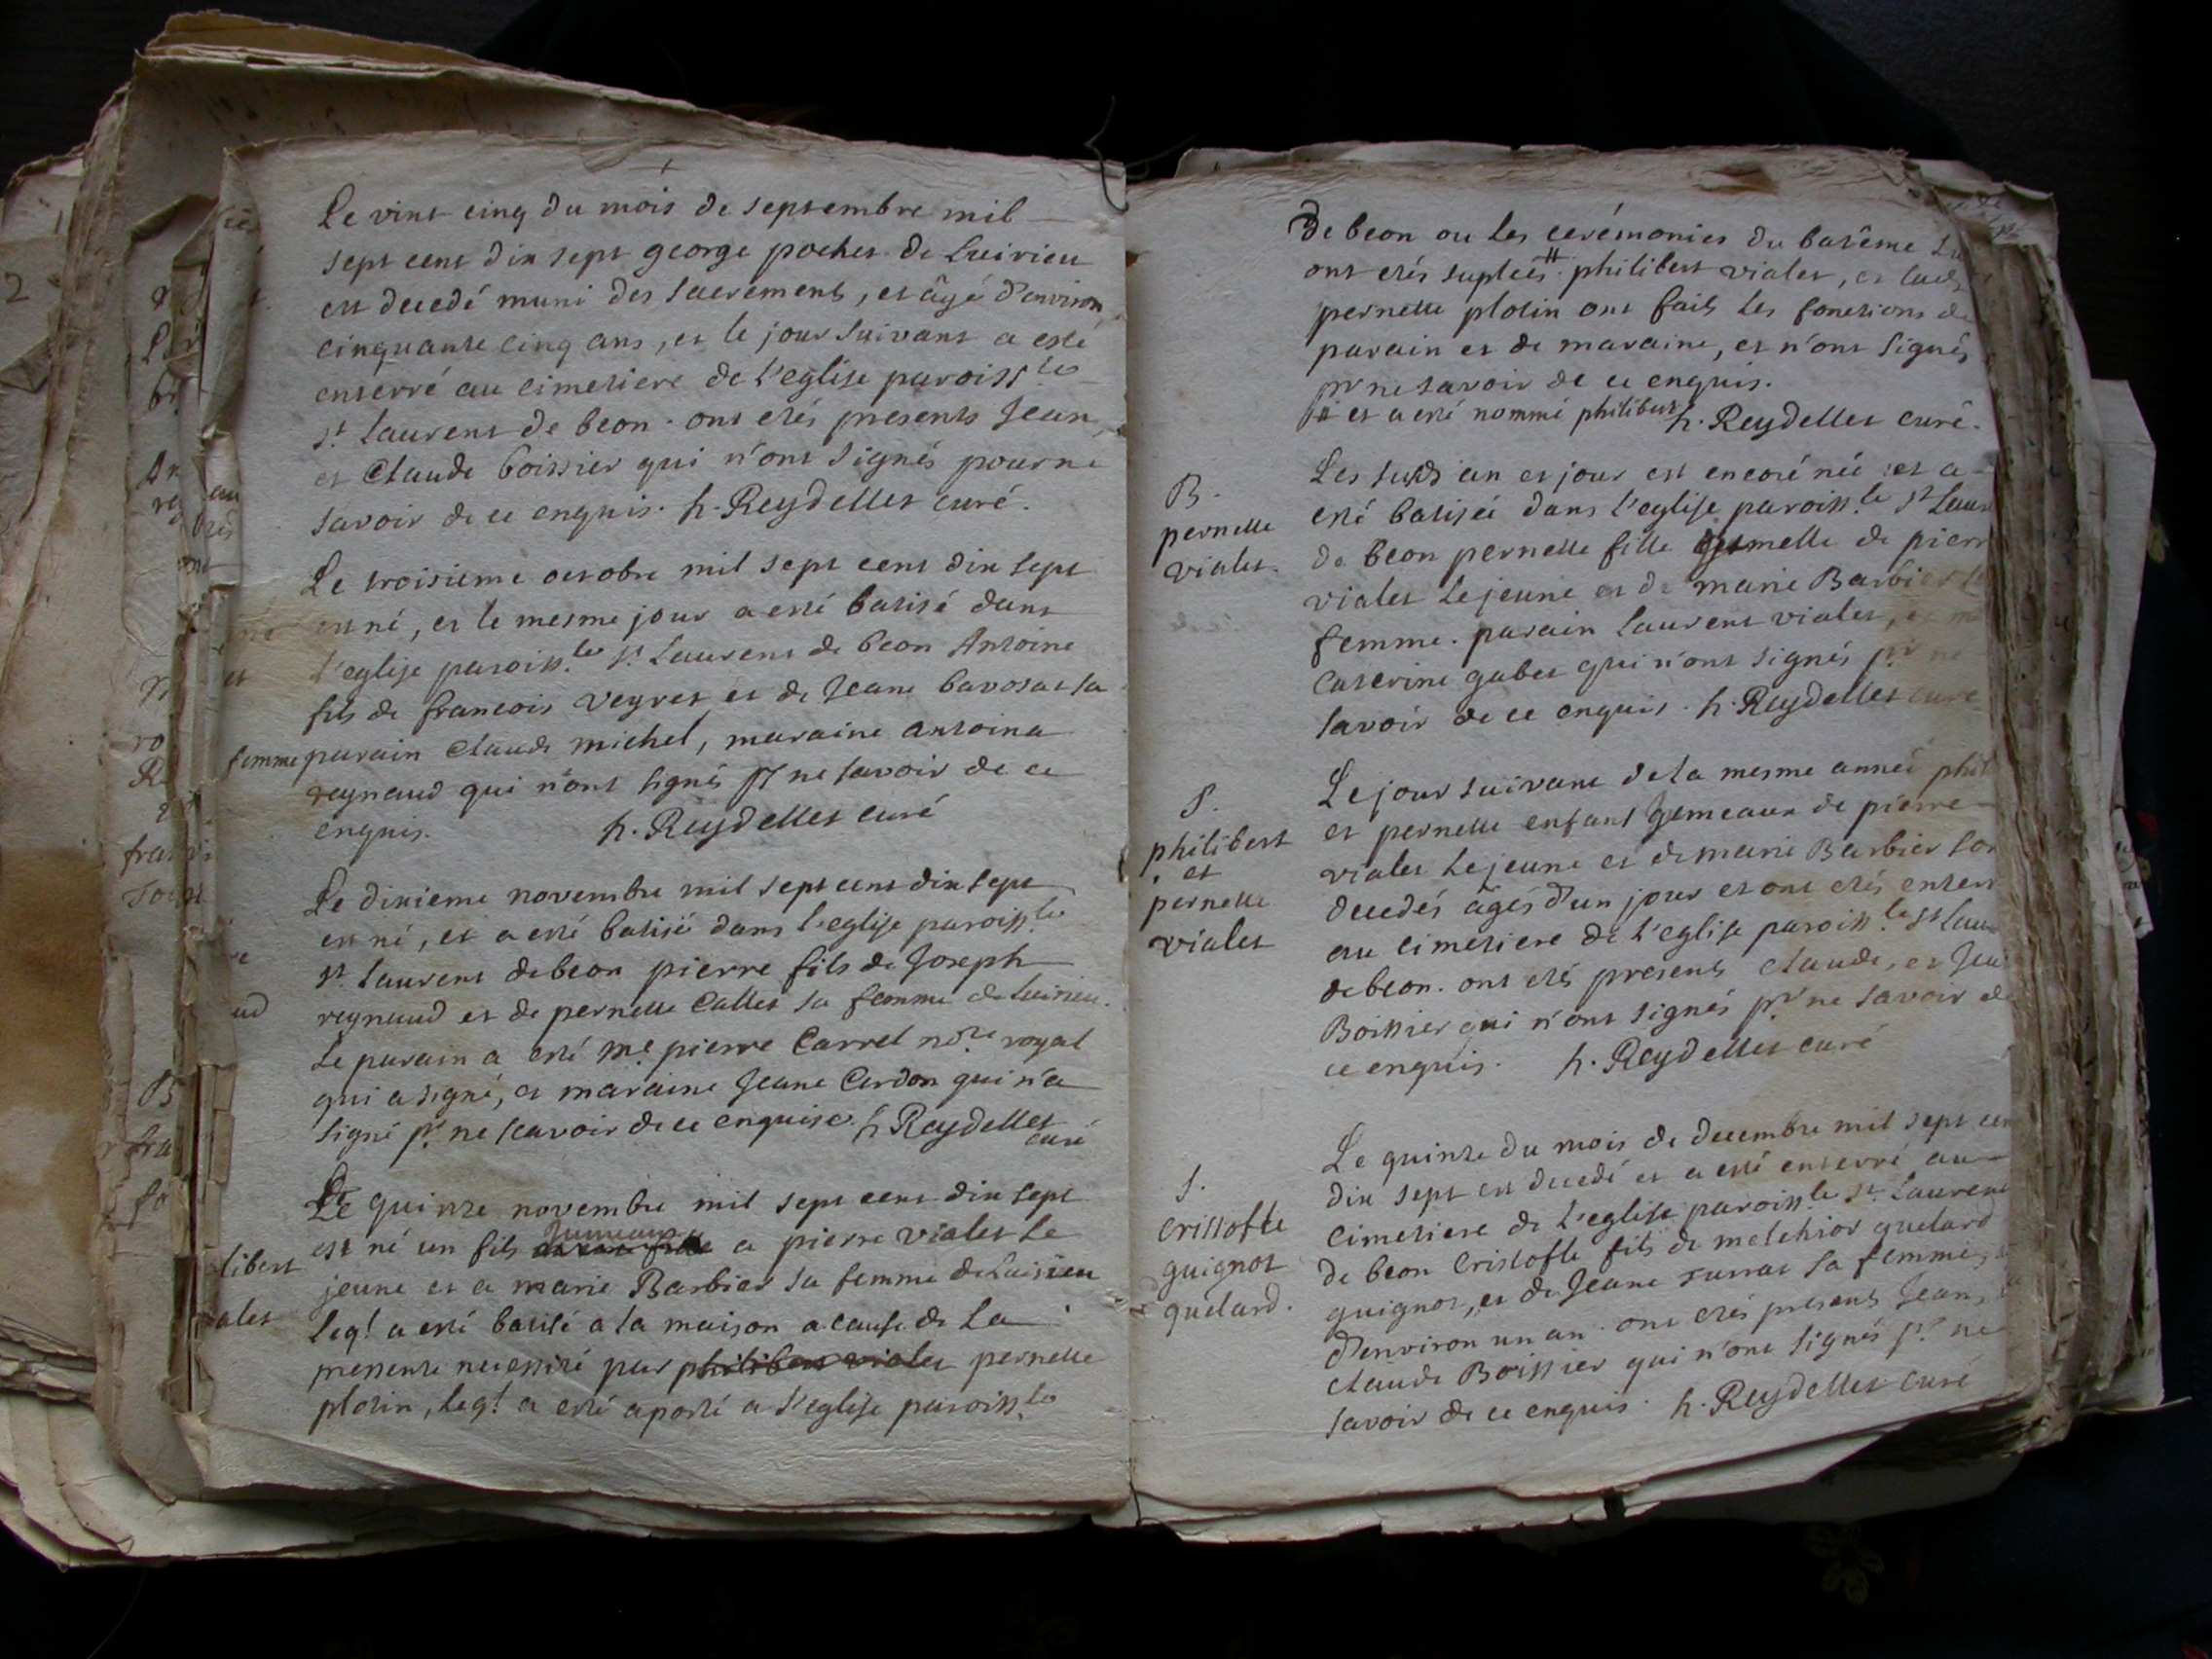 Le vint cinq du mois de septembre mil
sept cent dix sept george pochet de Luirieu
est decedé muni des sacrements, et âgé d'environ
cinquante cinq ans, et le jour suivant a esté
enterré au cimetiere de l'eglise paroiss.le
st. Laurent de beon. ont etés presents Jean,
et Claude boissier qui n'ont signés pour ne
savoir de ce enquis. h. Reydellet curé.
Le troisieme octobre mil sept cent dix sept
est né, et le mesme jour a esté batisé dans
l'eglise paroiss.le st. Laurent de beon Antoine
fils de francois Veyret et de Jeane bavosat sa
femme parain Claude michel, maraine antoina
reynaud qui n'ont signés pr ne savoir de ce
enquis. h. Reydellet curé
Le dixieme novembre mil sept cent dix sept
est né, et a esté batisé dans l'eglise paroiss.le
st. Laurent de beon pierre fils de Joseph
reynaud et de pernelle Callet sa femme de Luirieu.
Le parain a esté me. pierre Carrel nore royal
qui a signé, et maraine Jeane Cardon qui n'a
signé pr. ne scavoir de ce enquise. h Reydellet
curé
Le quinze novembre mil sept cent dix sept
Jumeaux
est né un fils a pierre vialet le
jeune et a marie Barbier sa femme de Luirieu
leql. a esté batisé a la maison a cause de la
pressente necessité par philibert vialet pernelle
plotin, leql. a esté aporté a l'eglise paroiss.le
libert
alet
ud
et
de beon ou les cerémonies du batême
ont etés suplées # philibert vialet, et
pernelle plotin ont fait les fonctions de
parain et de maraine, et n'ont signés
pr ne savoir de ce enquis.
# et a esté nommé philibert h. Reydellet curé.
B.
pernelle
vialet.
Les susds an et jour est encore née et a
esté batisée dans l'eglise paroiss.le st Laur
de beon pernelle fille gemelle de pierr
vialet le jeune et de marie Barbier
femme. parain Laurent vialet,
Caterine gabet qui n'ont signés pr ne
savoir de ce enquis. h. Reydellet curé
S.
philibert
et
pernelle
vialet
Le jour suivant de la mesme année phil
et pernelle enfant gemeaux de pierre
vialet le jeune et de marie Barbier son
decedés âgés d'un jour et ont etés enterr
au cimetiere de l'eglise paroiss.le st Laur
de beon. ont etés presents claude, et Jea
Boissier qui n'ont signés pr ne savoir de
ce enquis. h. Reydellet curé
S.
Cristofle
guignot
guelard.
Le quinze du mois de decembre mil sept cen
dix sept est decedé et a esté enterré au
cimetiere de l'eglise paroiss.le st. Laurent
de beon Cristofle fils de melchior guelard
guignot, et de Jeane surrat sa femme,
d'environ un an. ont etés presents Jean,
claude Boissier qui n'ont signés pr ne
savoir de ce enquis. h. Reydellet curé